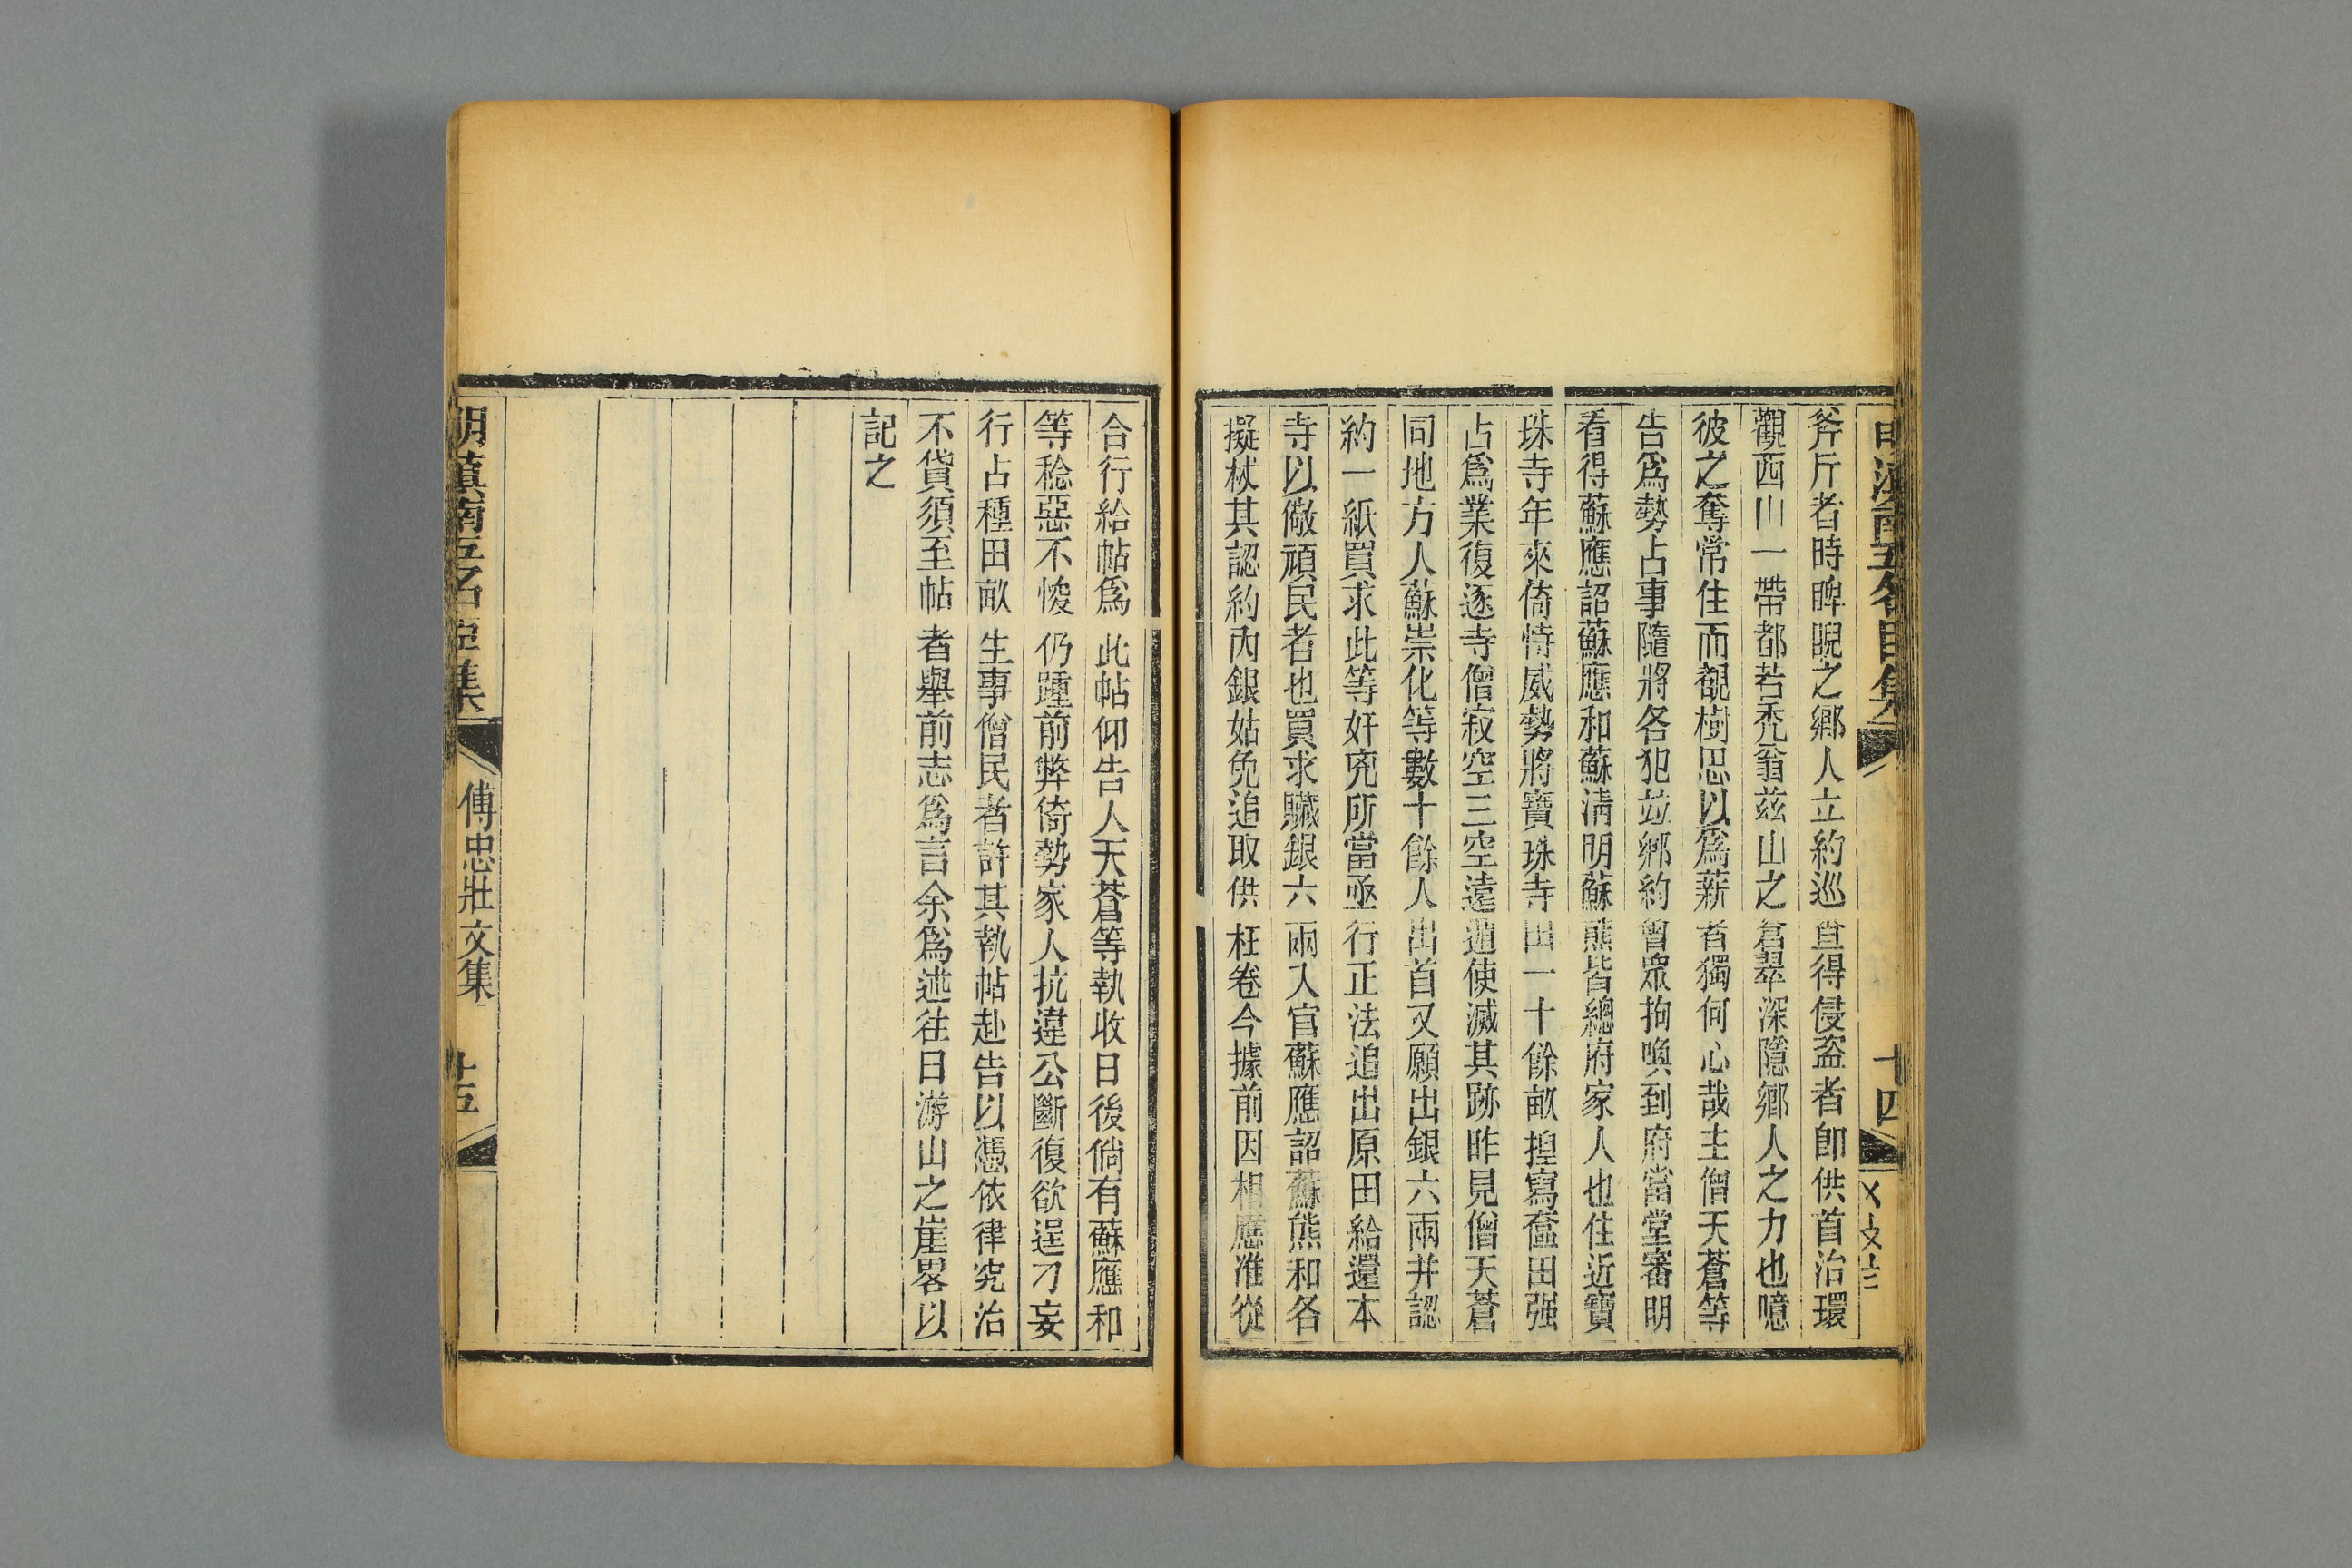 斧斤者時睥睨之鄉人立約巡查得侵盜者卽供首治環
觀西山一帶都若禿翁茲山之蒼翠深隱鄉人之力也噫
彼之奪常住而覩樹思以爲薪者獨何心哉主僧天蒼等
告爲勢占事隨將各犯竝鄉約曾眾拘喚到府當堂審明
看得蘇應詔蘇應和蘇淸明蘇熊皆總府家人也住近寶
珠寺年來倚恃威勢將寶珠寺田一十餘畝揑寫蠧田强
占爲業復逐寺僧寂空三空遠遁使滅其跡昨見僧天蒼
同地方人蘇崇化等數十餘人出首又願出銀六兩并認
約一紙買求此等奸宄所當亟行正法追出原田給還本
寺以儆頑民者也買求贓銀六兩入官蘇應詔蘇熊和各
擬杖其認約內銀姑免追取供枉卷今據前因相應准從
十四
合行給帖爲此帖仰告人天蒼等執收日後倘有蘇應和
等稔惡不悛仍踵前弊倚勢家人抗違公斷復欲逞刁妄
行占種田畝生事僧民者許其執帖赴告以憑依律究治
不貸須至帖者舉前志爲言余爲述往日游山之崖畧以
記之
明滇南五名臣集
傅忠壯文集
十五